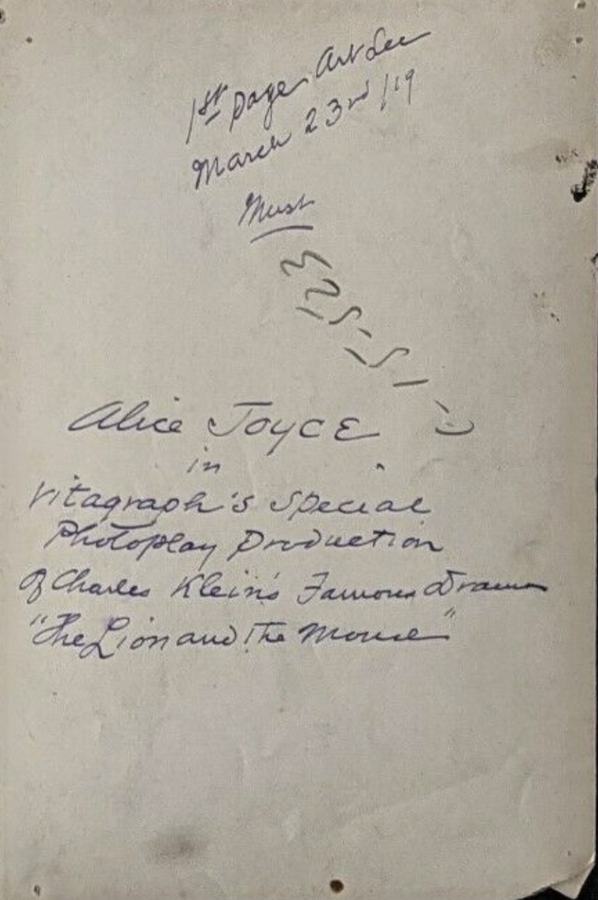 1st page Art Sec
March 23rd /19
Must
Alice Joyce
in
Vitagraph's Special
Photoplay Production
of Charles Klein's Famous Drama
"The Lion and The Mouse"